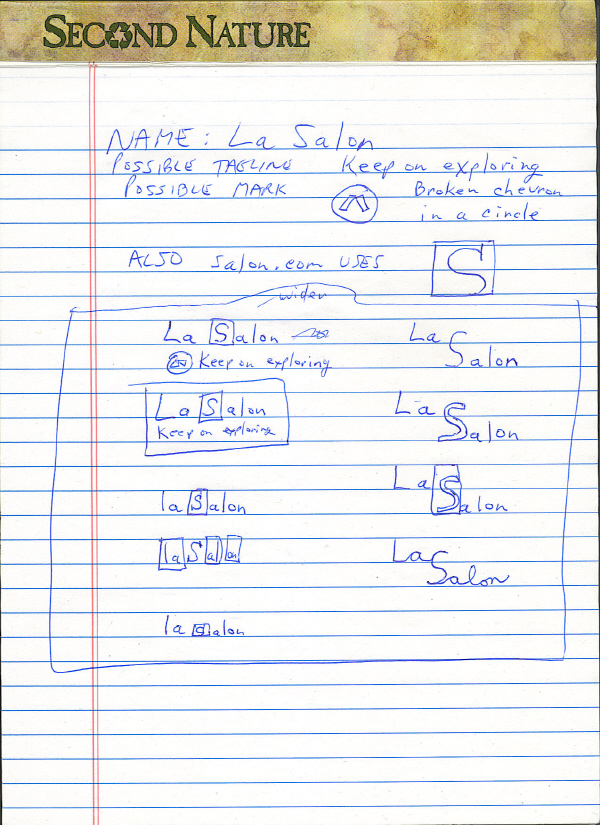 SECOND NATURE
NAME: La Salon
POSSIBLE TAGLINE Keep on exploring
POSSIBLE MARK Broken chevron
in a circle
ALSO salon.com USES S
wider
La Salon
Keep on exploring
La Salon
Keep on exploring
la Salon
la Salon
la Salon
La Salon
La Salon
La Salon
La Salon